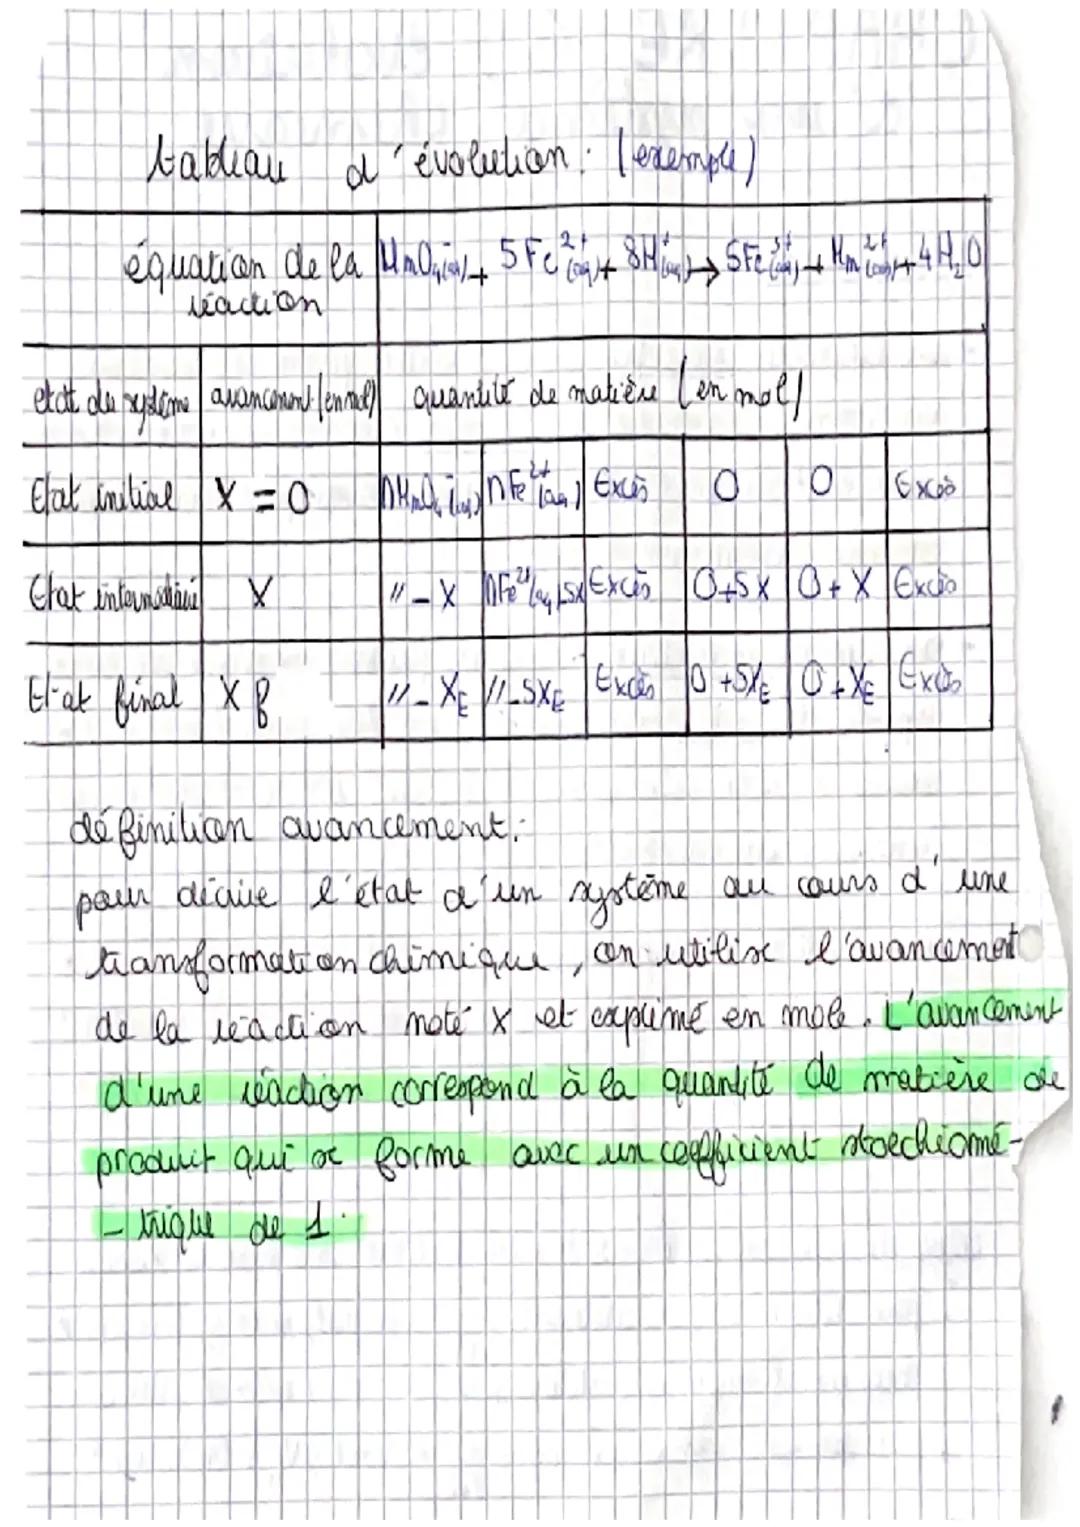 tableau d'évolution : (exemple)
équation de la réaction | MnO₄⁻(aq) + 5Fe²⁺(aq) + 8H⁺(aq) → 5Fe³⁺(aq) + Mn²⁺(aq) + 4H₂O
etat du système | avancement (en mol) | quantité de matière (en mol)
Etat initial | X = 0 | nMnO₄⁻(aq) | nFe²⁺(aq) | Excès | 0 | 0 | Excès
Etat intermédiaire | X | // - X | nFe²⁺(aq)-5X | Excès | 0+5X | 0+X | Excès
Etat final | Xf | // - XE | // - 5XE | Excès | 0+5XE | 0+XE | Excès
définition avancement :
pour décrire l'état d'un système au cours d'une
transformation chimique, on utilise l'avancement
de la réaction noté X et exprimé en mole. L'avancement
d'une réaction correspond à la quantité de matière de
produit qui se forme avec un coefficient stoechiomé-
-trique de 1.